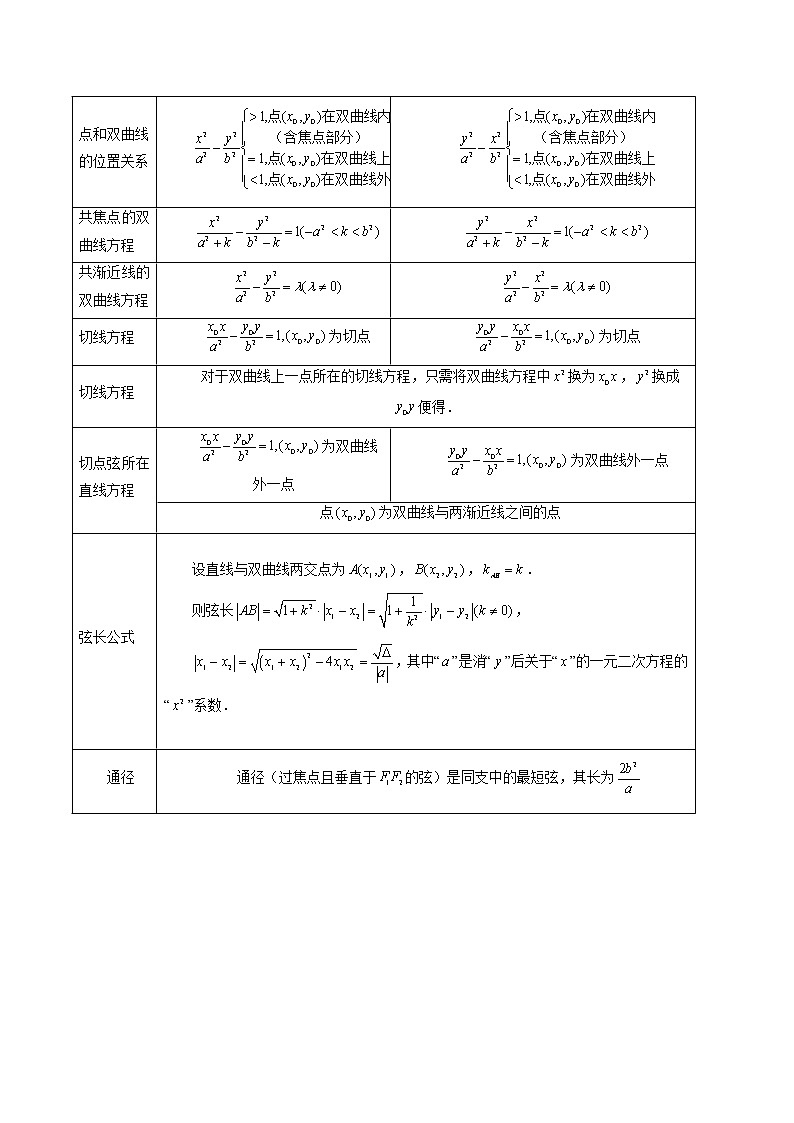 点和双曲线
的位置关系
x²/a² − y²/b² { >1,点(x₀,y₀)在双曲线内
（含焦点部分）
=1,点(x₀,y₀)在双曲线上
<1,点(x₀,y₀)在双曲线外
y²/a² − x²/b² { >1,点(x₀,y₀)在双曲线内
（含焦点部分）
=1,点(x₀,y₀)在双曲线上
<1,点(x₀,y₀)在双曲线外
共焦点的双
曲线方程
x²/(a²+k) − y²/(b²−k) = 1(−a² < k < b²)
y²/(a²+k) − x²/(b²−k) = 1(−a² < k < b²)
共渐近线的
双曲线方程
x²/a² − y²/b² = λ(λ ≠ 0)
y²/a² − x²/b² = λ(λ ≠ 0)
切线方程
x₀x/a² − y₀y/b² = 1,(x₀,y₀)为切点
y₀y/a² − x₀x/b² = 1,(x₀,y₀)为切点
切线方程
对于双曲线上一点所在的切线方程，只需将双曲线方程中x²换为x₀x，y²换成
y₀y便得．
切点弦所在
直线方程
x₀x/a² − y₀y/b² = 1,(x₀,y₀)为双曲线
外一点
y₀y/a² − x₀x/b² = 1,(x₀,y₀)为双曲线外一点
点(x₀,y₀)为双曲线与两渐近线之间的点
弦长公式
设直线与双曲线两交点为A(x₁,y₁)，B(x₂,y₂)，k_AB = k．
则弦长|AB| = √(1+k²)·|x₁−x₂| = √(1+1/k²)·|y₁−y₂|(k≠0)，
|x₁−x₂| = √((x₁+x₂)²−4x₁x₂) = √△/|a|,其中“a”是消“y”后关于“x”的一元二次方程的
“x²”系数．
通径
通径（过焦点且垂直于F₁F₂的弦）是同支中的最短弦，其长为2b²/a